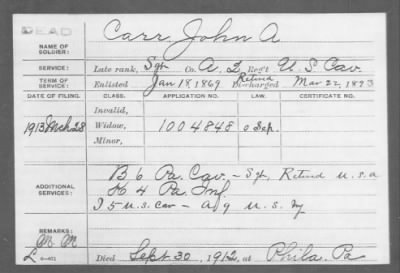 DEAD
NAME OF SOLDIER: Carr, John A
SERVICE: Late rank, Sgt Co. A, 2 Reg't U.S. Cav.
TERM OF SERVICE: Enlisted Jan 18, 1869 Retired Discharged Mar 22, 1893
DATE OF FILING. CLASS. APPLICATION NO. LAW. CERTIFICATE NO.
Invalid,
1913 Mch 28 Widow, 1004848
Minor,
ADDITIONAL SERVICES: B 6 Pa. Cav. – Sgt, Retired U.S.A
4 Pa. Inf.
5 U.S. Cav – U.S.
REMARKS:
Died Sept 30, 1912, at Phila. Pa